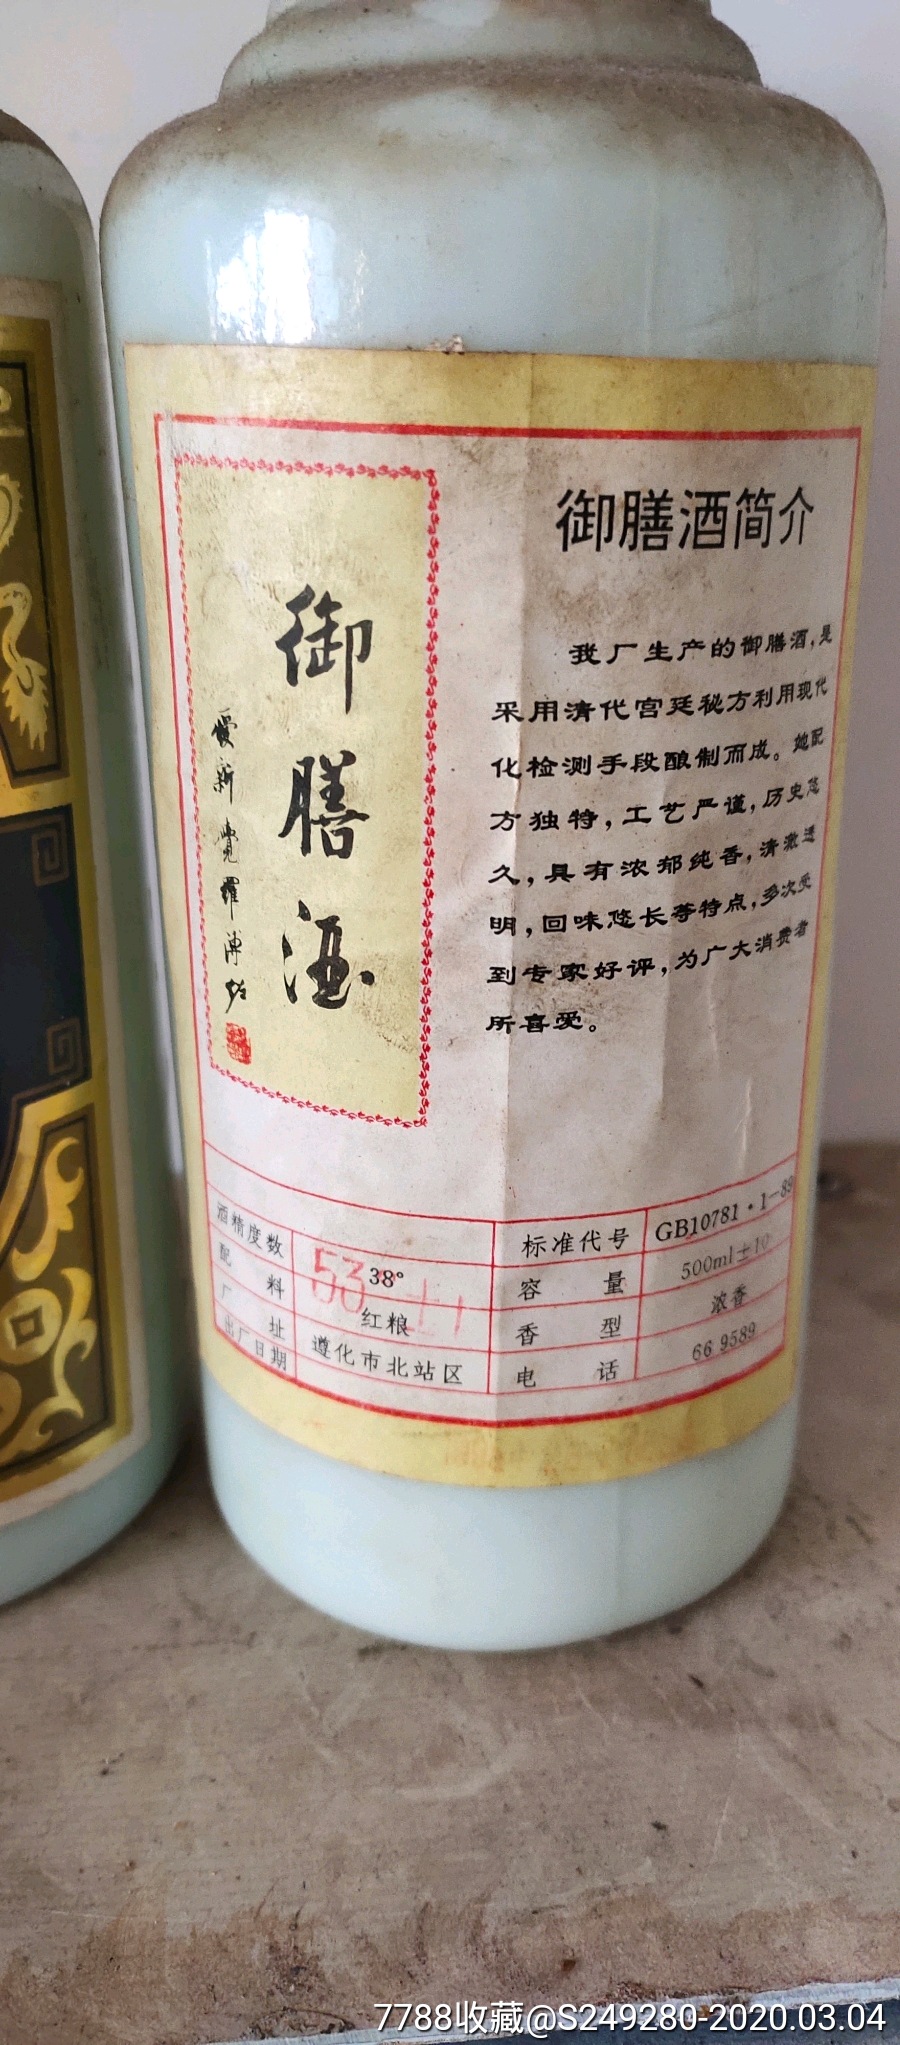 御膳酒
爱新觉罗溥佐
御膳酒简介
我厂生产的御膳酒,是
采用清代宫廷秘方利用现代
化检测手段酿制而成。她配
方独特,工艺严谨,历史悠
久,具有浓郁纯香,清澈透
明,回味悠长等特点,多次受
到专家好评,为广大消费者
所喜爱。
酒精度数 38° 53°±1
配料 红粮
厂址 遵化市北站区
出厂日期
标准代号 GB10781·1-89
容量 500ml±10
香型 浓香
电话 66 9589
7788收藏@S249280-2020.03.04